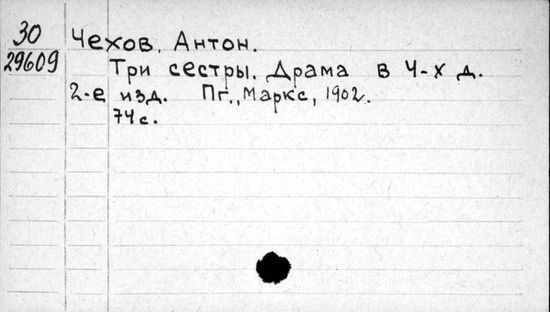 30
29609
Чехов, Антон.
Три сестры. Драма в 4-х д.
2-е изд. Пг., Маркс, 1902.
74 с.